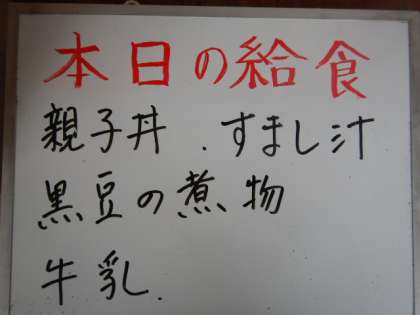 本日の給食
親子丼.すまし汁
黒豆の煮物
牛乳.